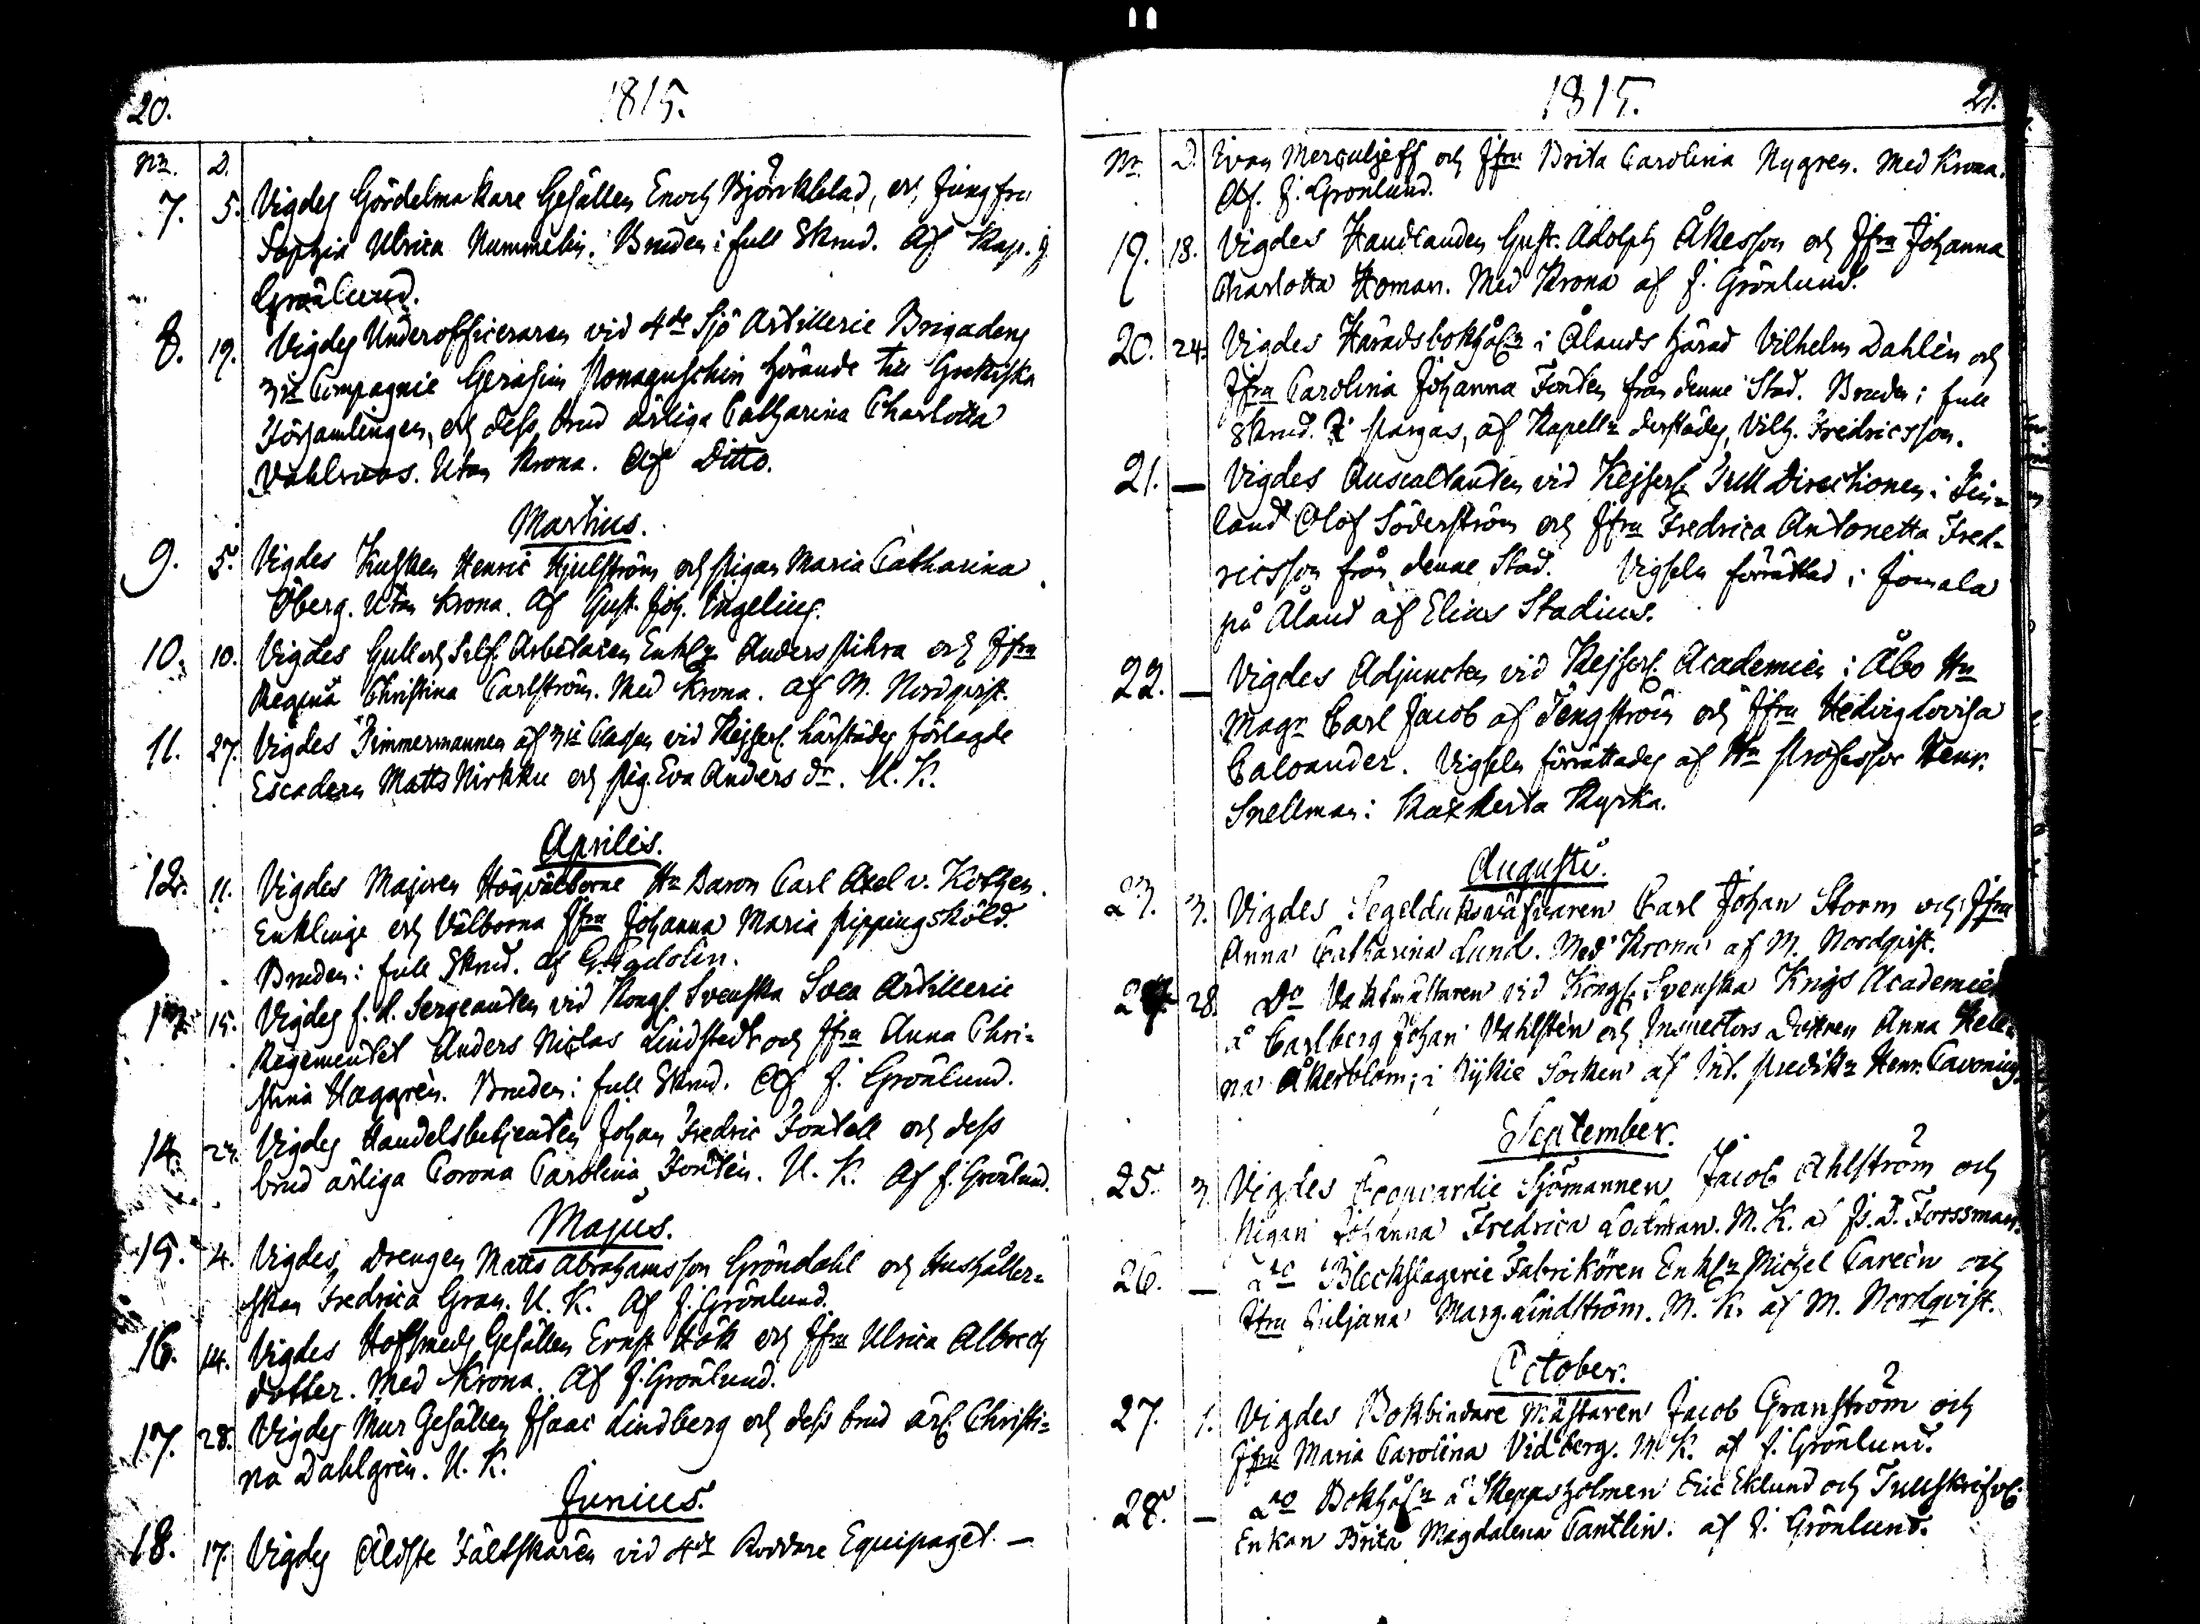 20. 1815.
Nr. D.
7. 5. Vigdes Gördelmakare Gesällen Enoch Björkblad, och Jungfru
Sophia Ulrica Nummelin. Bruden i full Skrud. Af Kap. J.
Grönlund.
8. 19. Vigdes Underofficeraren vid 4de Sjö Artillerie Brigadens
3ie Compagnie Gerasim Ponaguschin hörande till Grekiska
Församlingen, och dess brud ärliga Catharina Charlotta
Vahlroos. Utan Krona. Af Ditto.
Martius.
9. 5. Vigdes Kusken Henric Hjulström och Pigan Maria Catharina
Öberg. Utan Krona. Af Gust. Joh. Ingelius.
10. 10. Vigdes Gull och Silf. Arbetaren Enkl. Anders Pihra och Jfru
Regina Christina Carlström. Med Krona. Af M. Nordqvist.
11. 27. Vigdes Timmermannen af 3ie Classen vid Kejserl. härstädes förlagde
Escadern Matts Nirkku och Pig. Eva Anders dr. U. K.
Aprilis.
12. 11. Vigdes Majoren Högvälborne Hr Baron Carl Axel v. Kothen
Enklinge och Välborna Jfru Johanna Maria Pippingsköld.
Bruden i full Skrud. af G. Gadolin.
13. 15. Vigdes f. d. Sergeanten vid Kongl. Svenska Svea Artillerie
Regementet Anders Niclas Lindstedt och Jfru Anna Chri-
stina Häggrén. Bruden i full Skrud. Af J. Grönlund.
14. 23. Vigdes Handelsbetjenten Johan Fredric Fontell och dess
brud ärliga Corona Carolina Fontén. U. K. Af J. Grönlund.
Majus.
15. 4. Vigdes Drengen Matts Abrahamsson Gröndahl och Hushåller-
skan Fredrica Gran. U. K. Af J. Grönlund.
16. 14. Vigdes Hofsmeds Gesällen Ernst Hök och Jfru Ulrica Albrechs
dotter. Med Krona. Af J. Grönlund.
17. 28. Vigdes Mur Gesällen Isaac Lindberg och dess brud ärl. Christi-
na Dahlgrén. U. K.
Junius.
18. 17. Vigdes Äldste Fältskären vid 4de Roddare Equipaget –
1815. 21.
Nr. D. Ivan Merculjeff och Jfru Brita Carolina Nygren. Med Krona.
Af. J. Grönlund.
19. 18. Vigdes Handlanden Gust. Adolph Åkesson och Jfru Johanna
Charlotta Homan. Med Krona af J. Grönlund.
20. 24. Vigdes Häradsbokhålr i Ålands härad Vilhelm Dahlén och
Jfru Carolina Johanna Fontén från denne Stad. Bruden i full
Skrud. I Pargas, af Kapelln derstädes, Vilh. Fredricsson.
21. – Vigdes Auscaltanten vid Kejserl. Tull Directionen i Fin-
land Olof Söderström och Jfru Fredrica Antonetta Fred-
ricsson från denne Stad. Vigseln förrättad i Jomala
på Åland af Elias Stadius.
22. – Vigdes Adjuncten vid Kejserl. Academien i Åbo Hr
Magr Carl Jacob af Tengström och Jfru Hedvig Lovisa
Caloander. Vigseln förrättades af Hr Professor Henr.
Snellman i Kaxkerta Kyrka.
Augusti.
23. 3. Vigdes Segelduksväfvaren Carl Johan Storm och Jfru
Anna Catharina Lund. Med Krona af M. Nordqvist.
24. 28. Do Vaktmästaren vid Kongl. Svenska Krigs Academien
å Carlberg Johan Vahlstén och Inspectors Dottren Anna Hele-
na Åkerblom, i Kykie Socken af Int. Predikn Henr. Cavonius.
September.
25. 3. Vigdes Coopvardie Sjömannen Jacob Ahlström och
Pigan Johanna Fredrica Lockman. M. K. af Js. J. Forssman.
26. – Do Bleckslagerie Fabrikören Enkl. Michel Careén och
Jfru Juljana Marg. Lindström. M. K. af M. Nordqvist.
October.
27. 1. Vigdes Bokbindare Mästaren Jacob Granström och
Jfru Maria Carolina Vidberg. M. K. af J. Grönlund.
28. – Do Bokhålr å Skeppsholmen Eric Eklund och Tullskrifv.
Enkan Brita Magdalena Cantlin. af J. Grönlund.